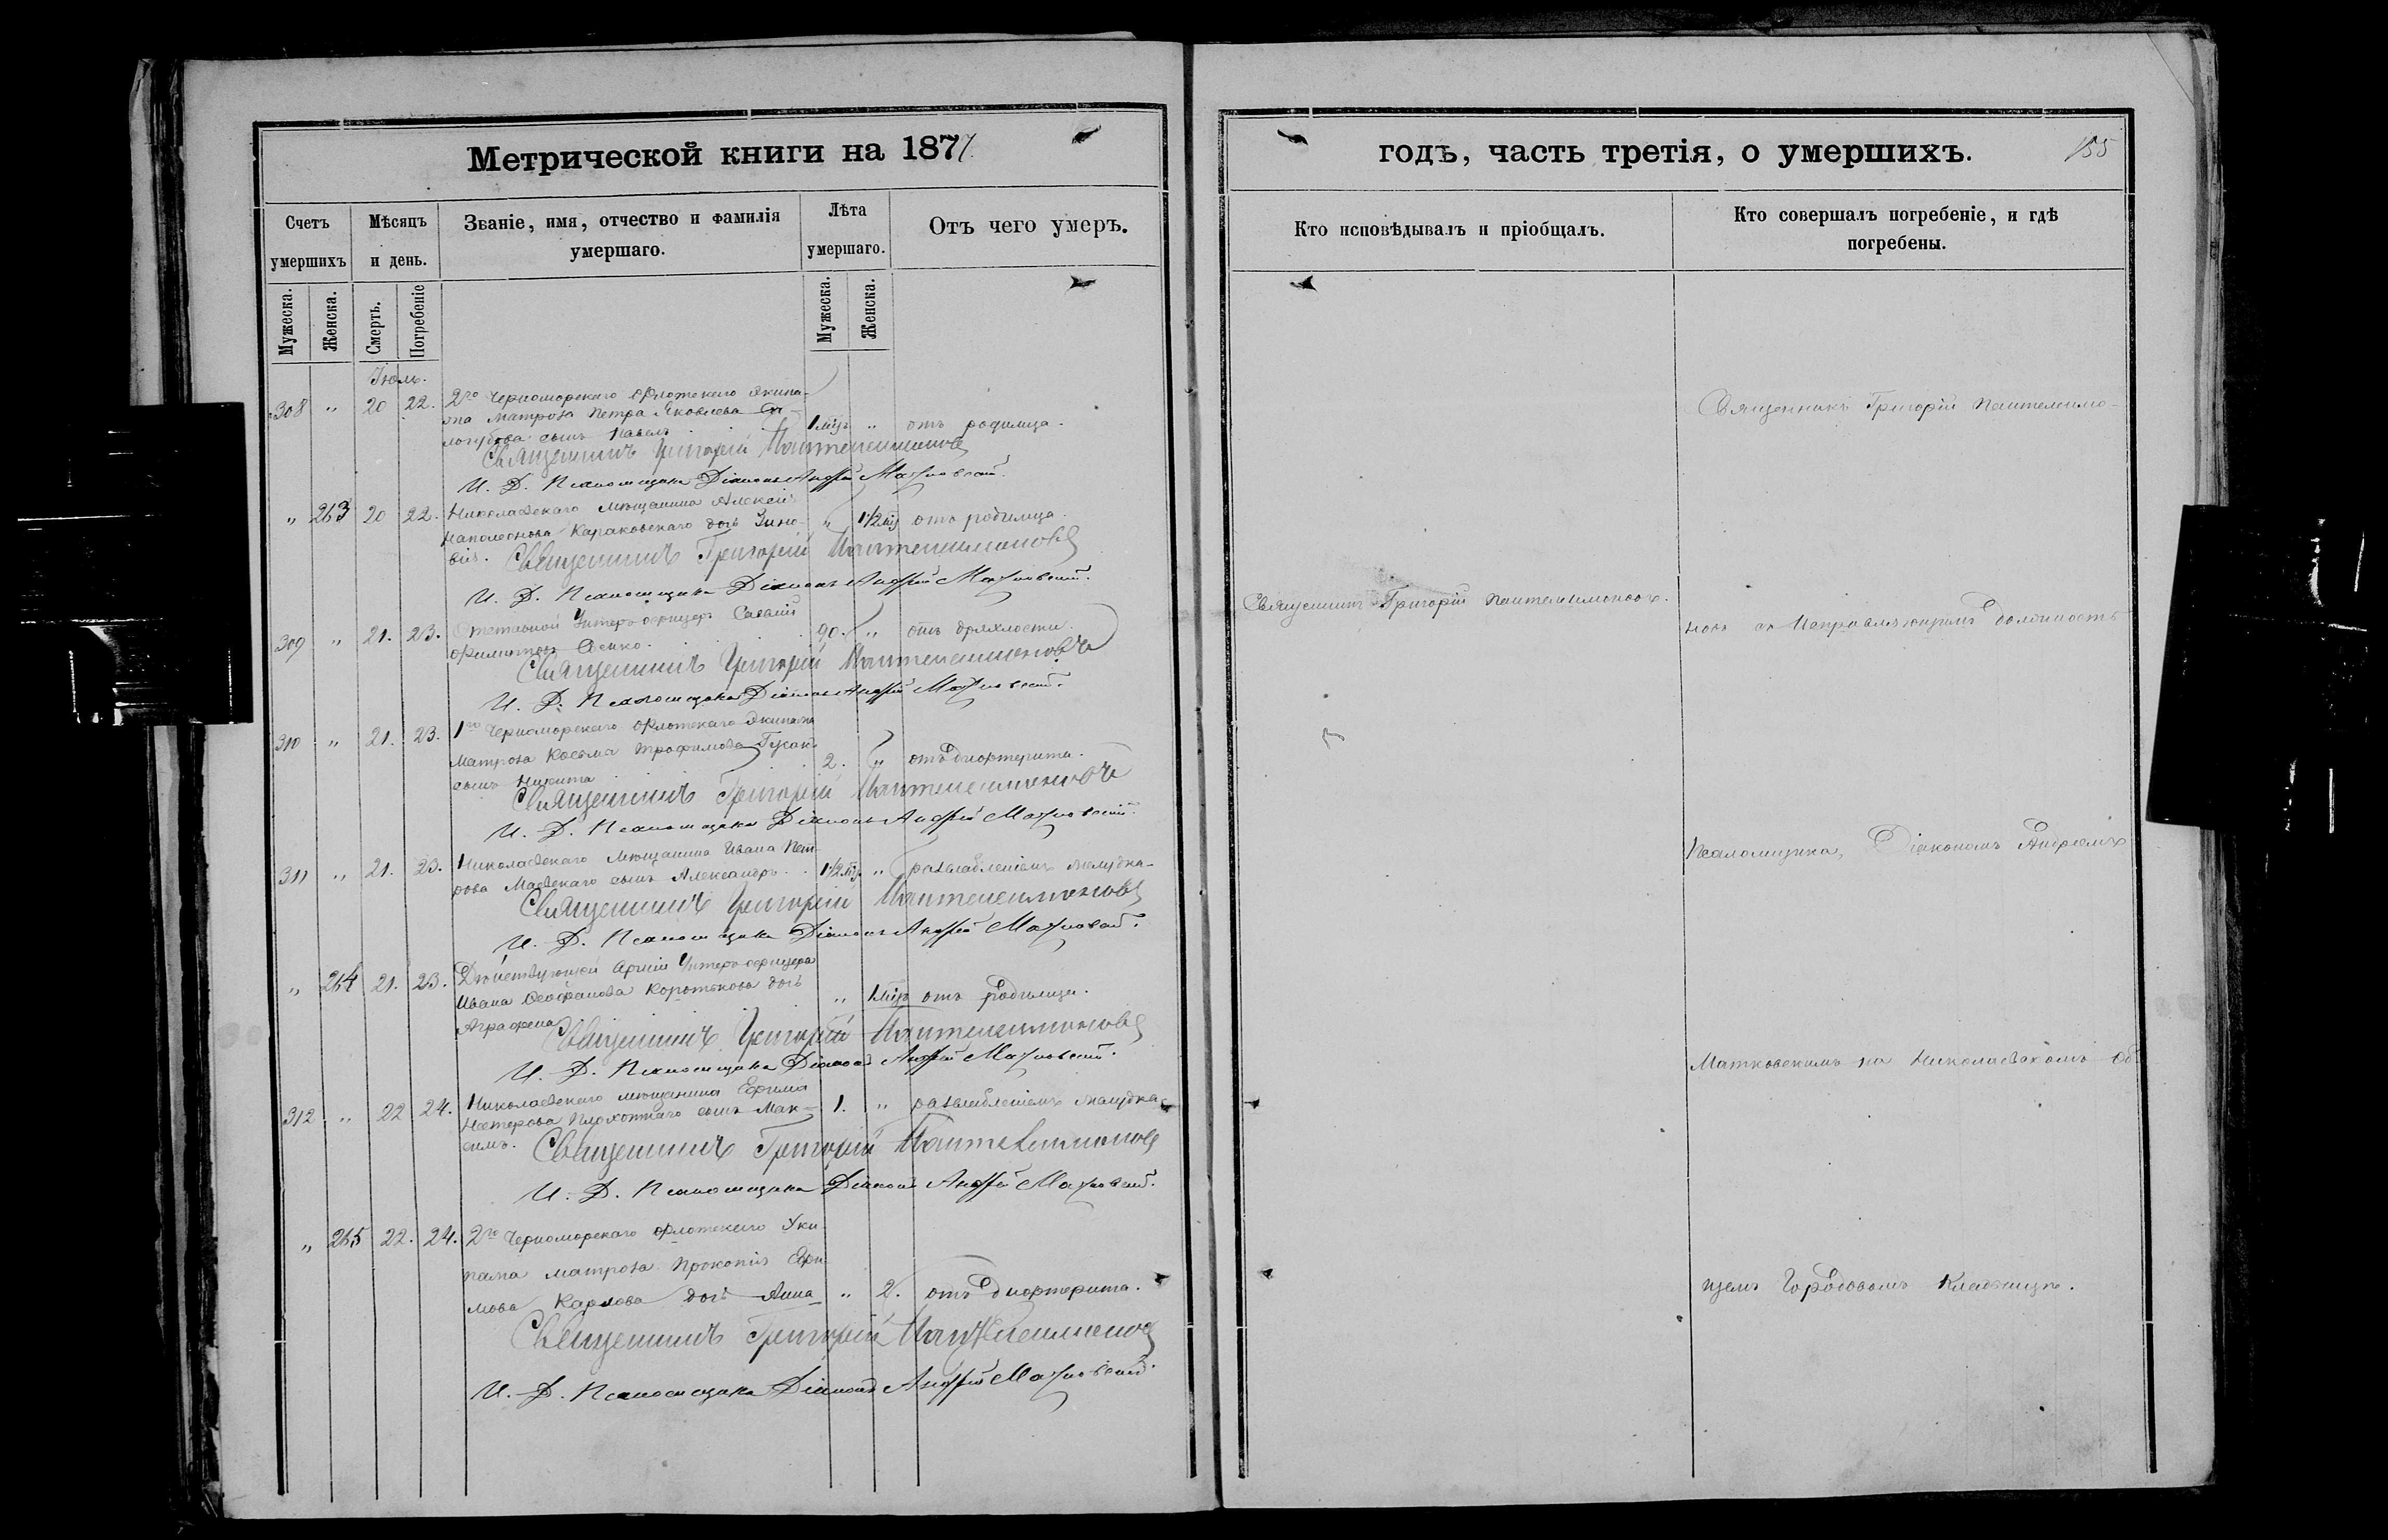 Метрической книги на 1877
Счетъ умершихъ
Мѣсяцъ и день.
Званіе, имя, отчество и фамилія умершаго.
Лѣта умершаго.
Отъ чего умеръ.
Мужеска. Женска. Смерть. Погребеніе Мужеска. Женска.
Іюль.
308 " 20 22. 2го Черноморскаго Флотскаго Экипа-
жа матроза Петра Яковлева
сынъ Павелъ 1 мѣс. " отъ родимца.
Священникъ Григорій Пантелеимоновъ
И. Д. Псаломщика Діаконъ Андрей Матковскій.
" 263 20 22. Николаевскаго мѣщанина Алексѣя
Наполеонова Караковскаго дочь Зино-
вія. " 1 1/2 мѣс отъ родимца.
Священникъ Григорій Пантелеимоновъ
И. Д. Псаломщика Діаконъ Андрей Матковскій.
309 " 21. 23. Отставной Унтеръ-офицеръ Савва
Филиповъ 90. " отъ дряхлости.
Священникъ Григорій Пантелеимоновъ
И. Д. Псаломщика Діаконъ Андрей Матковскій.
310 " 21. 23. 1го Черноморскаго Флотскаго Экипажа
Матроза Косьма Трофимова Гусакъ
сынъ Никита 2. " отъ дифтерита.
Священникъ Григорій Пантелеимоновъ
И. Д. Псаломщика Діаконъ Андрей Матковскій.
311 " 21. 23. Николаевскаго Мѣщанина Ивана Пет-
рова Маевскаго сынъ Александръ. 1 1/2 мѣс. " разслабленіемъ желудка.
Священникъ Григорій Пантелеимоновъ
И. Д. Псаломщика Діаконъ Андрей Матковскій.
" 264 21. 23. Дѣйствующей Арміи Унтеръ-офицера
Ивана Короткова дочь
Аграфена " 1 мѣс отъ родимца.
Священникъ Григорій Пантелеимоновъ
И. Д. Псаломщика Діаконъ Андрей Матковскій.
312 " 22 24. Николаевскаго мѣщанина Ефима
Нестерова Плохотнаго сынъ Мак-
симъ. 1. " разслабленіемъ желудка.
Священникъ Григорій Пантелеимоновъ
И. Д. Псаломщика Діаконъ Андрей Матковскій.
" 265 22. 24. 2го Черноморскаго Флотскаго Эки-
пажа матроза Прокопія Ефи-
мова Карлова дочь Анна " 2. отъ дифтерита.
Священникъ Григорій Пантелеимоновъ
И. Д. Псаломщика Діаконъ Андрей Матковскій.
годъ, часть третія, о умершихъ. 155
Кто исповѣдывалъ и пріобщалъ.
Кто совершалъ погребеніе, и гдѣ погребены.
Священникъ Григорій Пантелеимоновъ.
Священникъ Григорій Пантелеимо-
новъ съ Исправляющимъ должность
Псаломщика, Діакономъ Андреемъ
Матковскимъ на Николаевскомъ об-
щемъ Городовомъ Кладбищѣ.